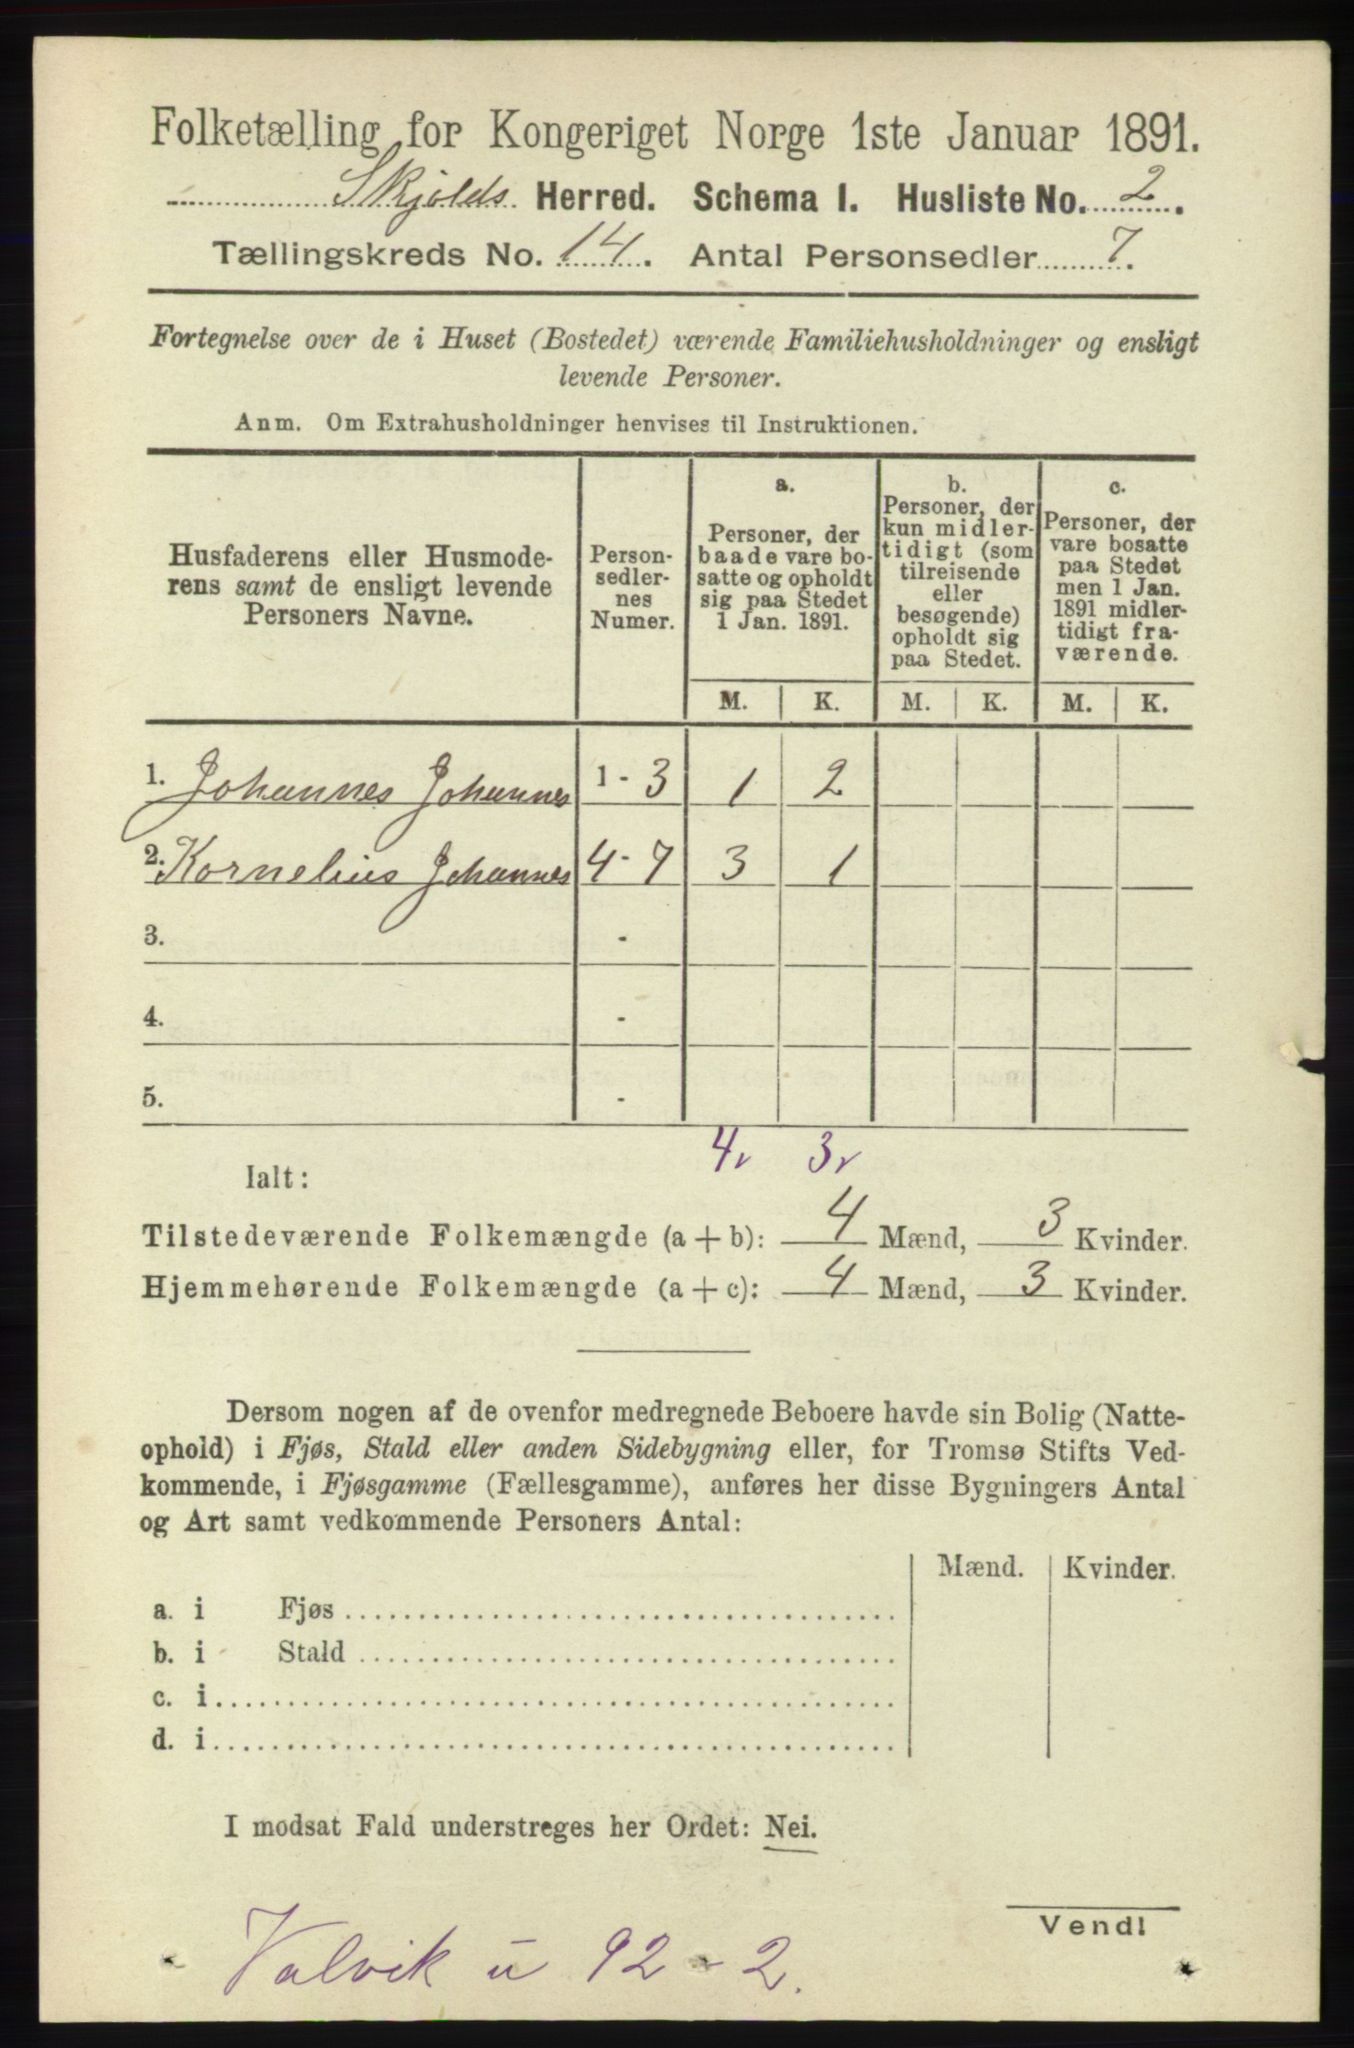 Folketælling for Kongeriget Norge 1ste Januar 1891.
Skjolds Herred. Schema I. Husliste No. 2.
Tællingskreds No. 14. Antal Personsedler 7.
Fortegnelse over de i Huset (Bostedet) værende Familiehusholdninger og ensligt
levende Personer.
Anm. Om Extrahusholdninger henvises til Instruktionen.
Husfaderens eller Husmode-
rens samt de ensligt levende
Personers Navne.
Person-
sedler-
nes
Numer.
a.
Personer, der
baade vare bo-
satte og opholdt
sig paa Stedet
1 Jan. 1891.
b.
Personer, der
kun midler-
tidigt (som
tilreisende
eller
besøgende)
opholdt sig
paa Stedet.
c.
Personer, der
vare bosatte
paa Stedet
men 1 Jan.
1891 midler-
tidigt fra-
værende.
M. K. M. K. M. K.
1. Johannes Johannes 1 - 3 1 2
2. Kornelius Johannes 4 - 7 3 1
3. -
4. -
5. -
4v 3v
Ialt:
Tilstedeværende Folkemængde (a + b): 4 Mænd, 3 Kvinder.
Hjemmehørende Folkemængde (a + c): 4 Mænd, 3 Kvinder.
Dersom nogen af de ovenfor medregnede Beboere havde sin Bolig (Natte-
ophold) i Fjøs, Stald eller anden Sidebygning eller, for Tromsø Stifts Ved-
kommende, i Fjøsgamme (Fællesgamme), anføres her disse Bygningers Antal
og Art samt vedkommende Personers Antal:
Mænd. Kvinder.
a. i Fjøs
b. i Stald
c. i
d. i
I modsat Fald understreges her Ordet: Nei.
Vend!
Valvik u 92 - 2.